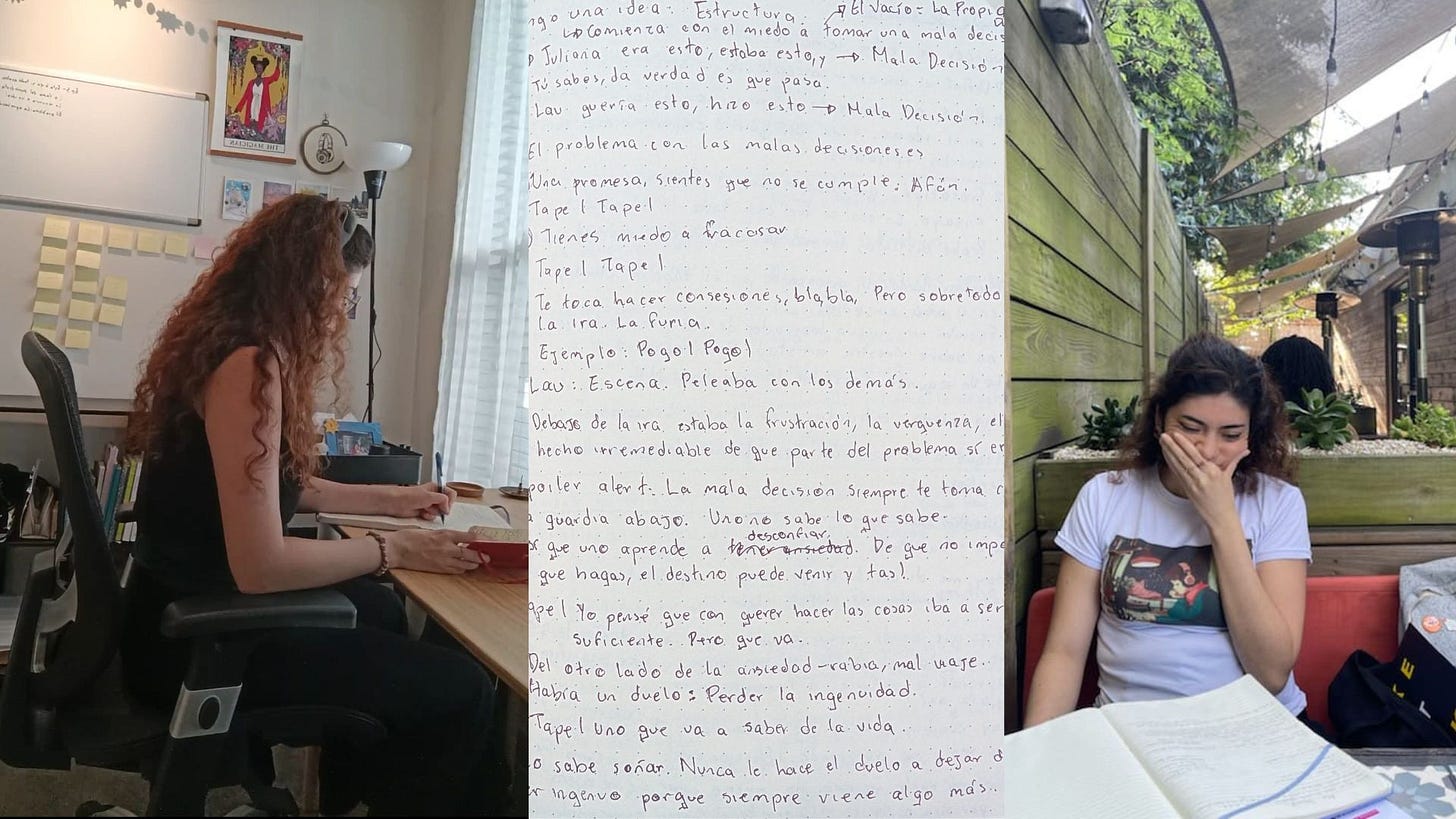 THE MAGICIAN
ngo una idea: Estructura. El Vacío = La Propia
Comienza con el miedo a tomar una mala decis
Juliana era esto, estaba esto, y → Mala Decisión
Tú sabes, la verdad es que pasa.
Lau quería esto, hizo esto → Mala Decisión.
El problema con las malas decisiones es
Una promesa, sientes que no se cumple: Afán.
Tape! Tape!
Tienes miedo a fracasar
Tape! Tape!
Te toca hacer consesiones, blabla, Pero sobretodo
La ira. La furia.
Ejemplo: Pogo! Pogo!
Lau: Escena. Peleaba con los demás.
Debajo de la ira estaba la frustración, la verguenza, el
hecho irremediable de que parte del problema sí er
poiler alert: La mala decisión siempre te toma c
guardia abajo. Uno no sabe lo que sabe.
desconfiar
que uno aprende a tener ansiedad. De que no impo
que hagas, el destino puede venir y tas!
ape! Yo pensé que con querer hacer las cosas iba a ser
suficiente. Pero que va.
Del otro lado de la ansiedad-rabia, mal viaje.
Había un duelo: Perder la ingenuidad.
Tape! Uno que va a saber de la vida.
o sabe soñar. Nunca le hace el duelo a dejar d
er ingenuo porque siempre viene algo más..